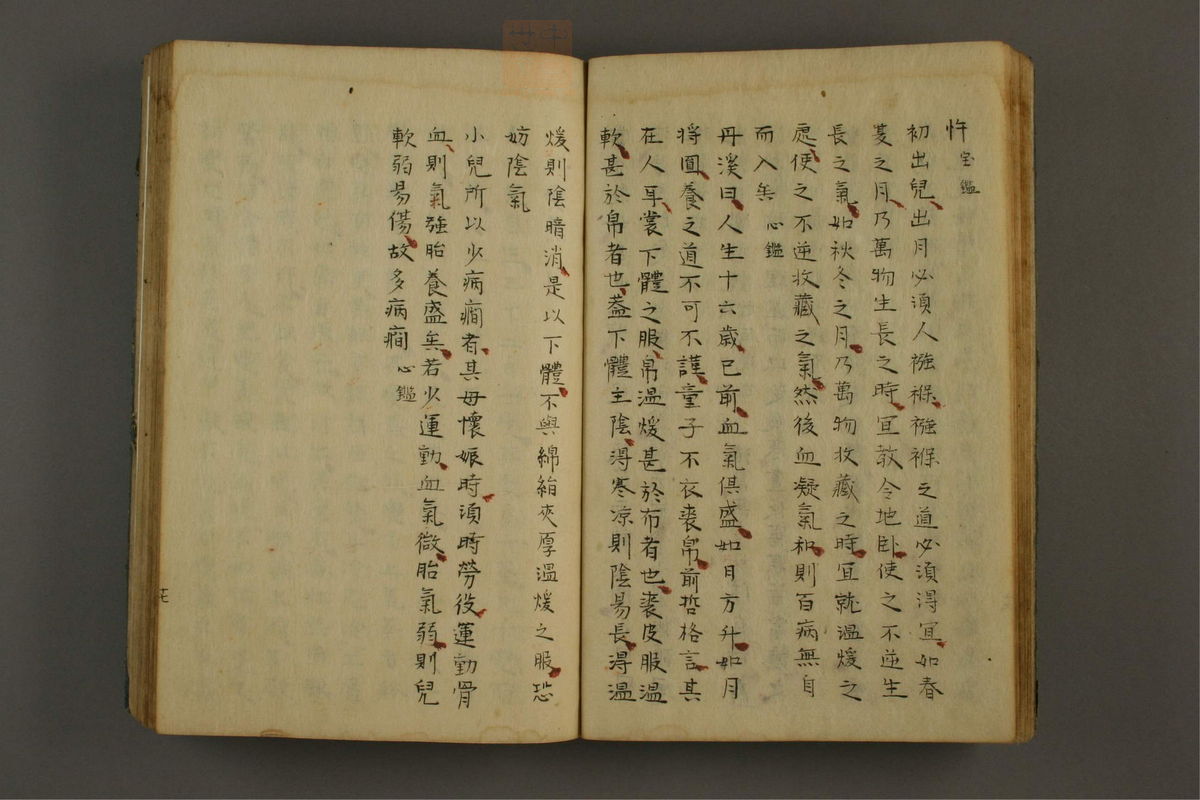 忤 宝鑑
初出兒出月必湏人襁褓襁褓之道必湏淂宜如春
夏之月乃萬物生長之時宜教令地卧使之不逆生
長之氣如秋冬之月乃萬物收藏之時宜就温煖之
處使之不逆收藏之氣然後血凝氣和則百病無自
而入矣 心鑑
丹溪曰人生十六歳已前血氣俱盛如日方升如月
将圓養之道不可不謹童子不衣裘帛前哲格言其
在人耳裳下體之服帛温煖甚於布者也裘皮服温
軟甚於帛者也盖下體主陰淂寒凉則陰昜長淂温
煖則陰暗消是以下體不與綿絹夾厚温煖之服恐
妨陰氣
小兒所以少病癎者其母懷娠時湏時勞役運動骨
血則氣強胎養盛矣若少運動血氣微胎氣弱則兒
軟弱昜傷故多病癎 心鑑